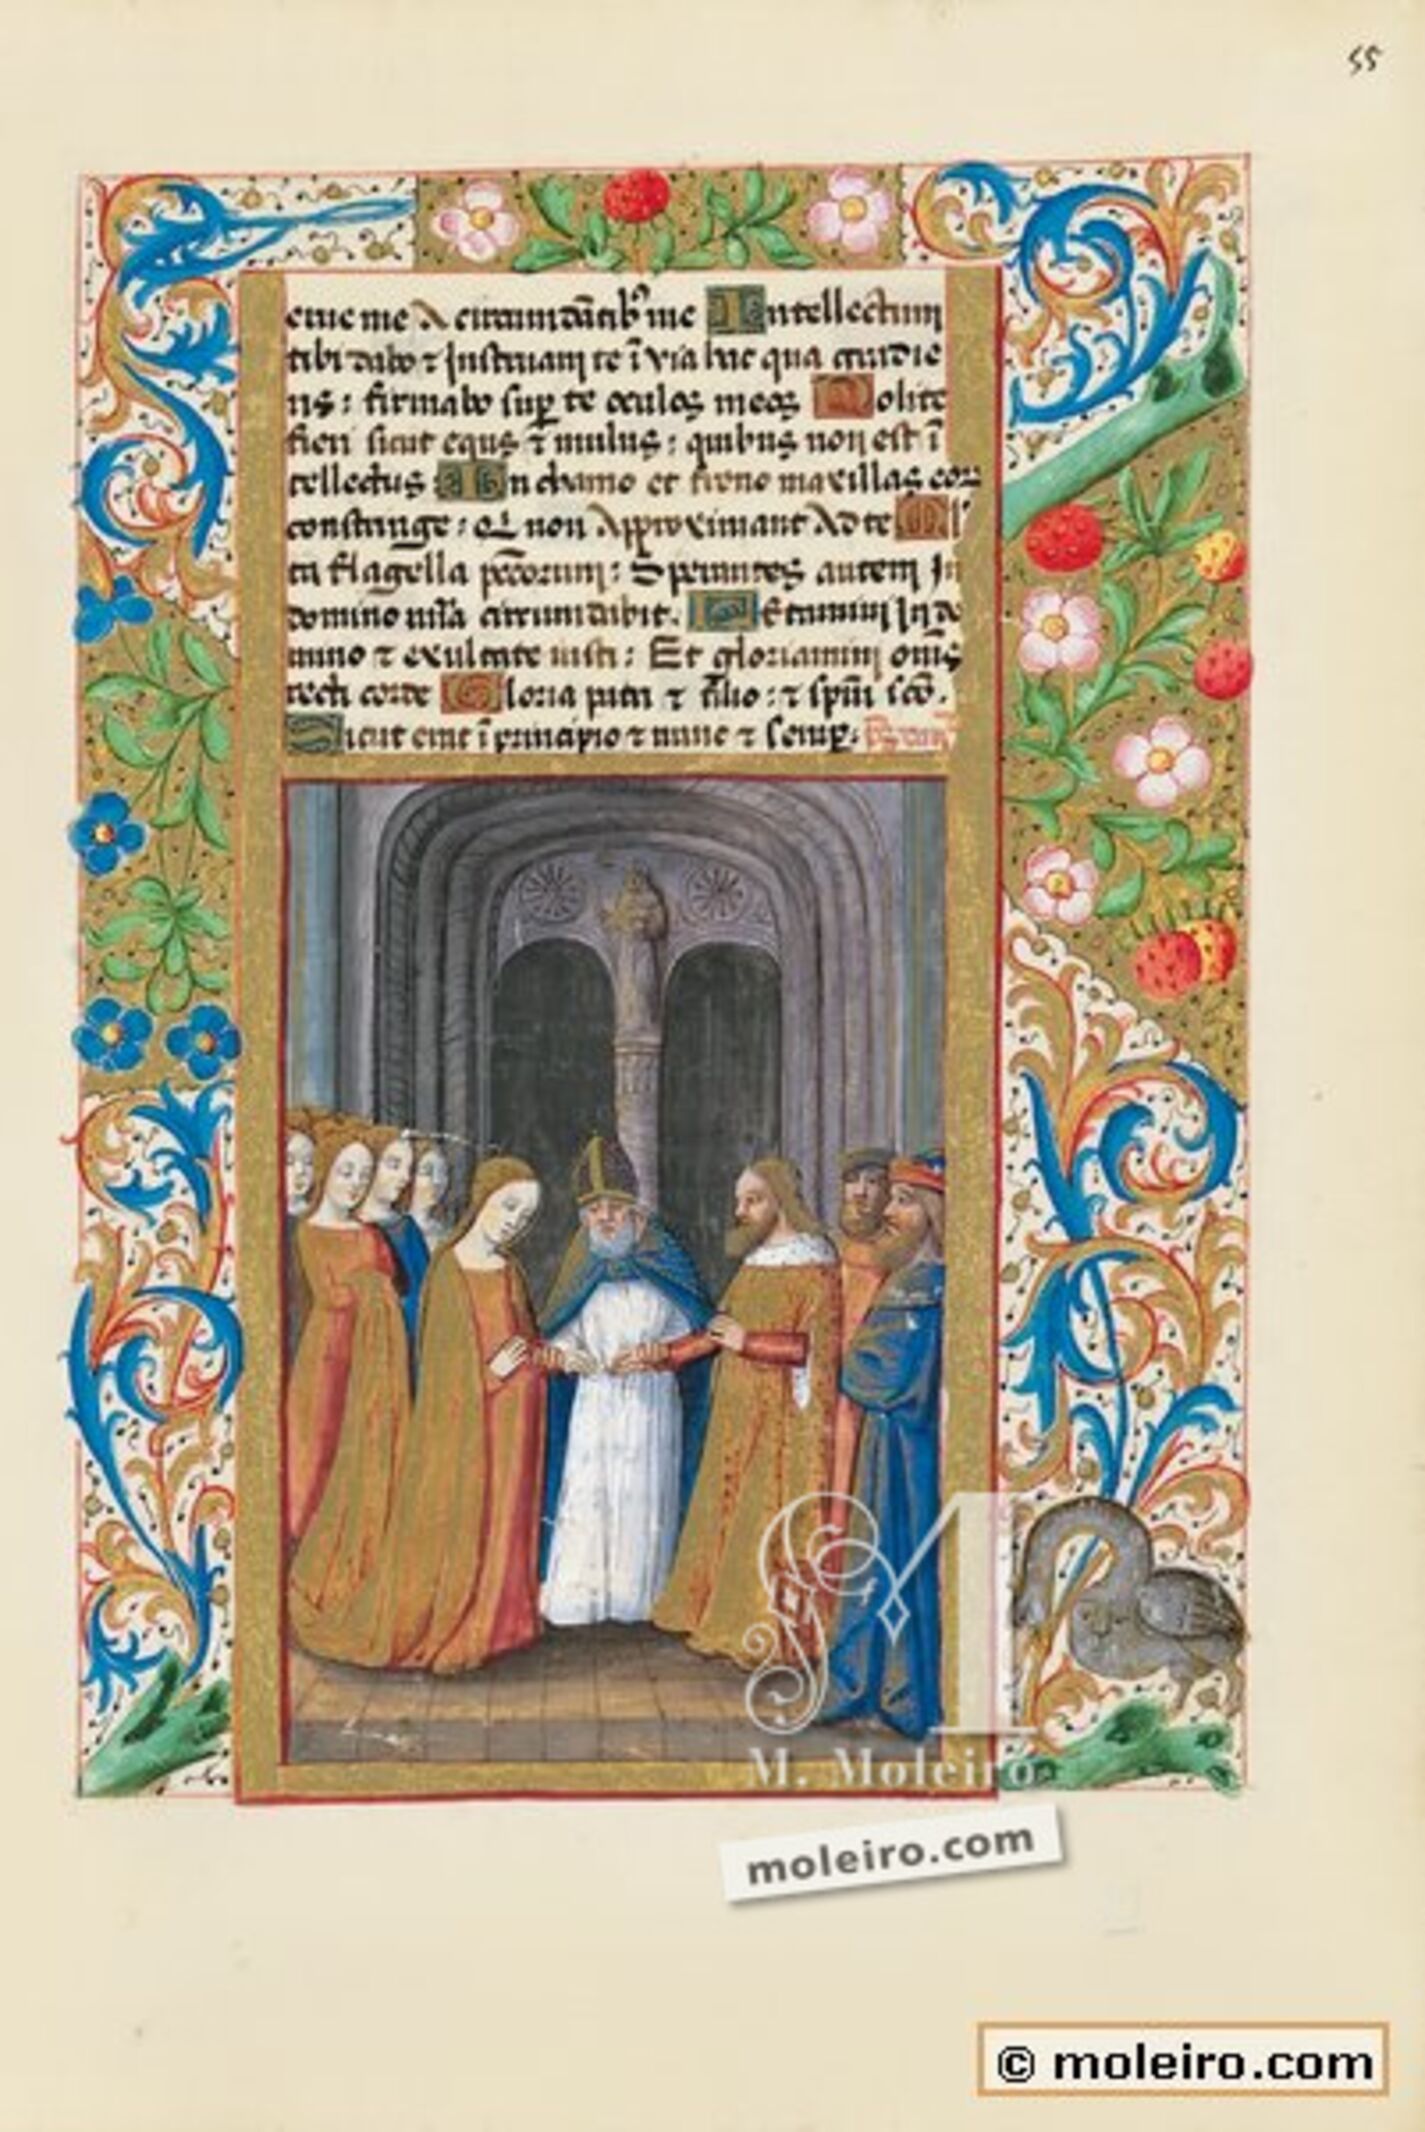 55
erue me a circumdātib⁹ me Intellectum
tibi dabo ⁊ Instruam te ī via hac qua gradie
ris : firmabo sup te oculos meos Nolite
fieri sicut equs ⁊ mulus : quibus non est ī
tellectus In chamo et freno maxillas eoꝝ
constringe : Qͥ non Approximant Ad te Ml'
ta flagella pctōrum : Sperantes autem In
domino mīa circumdabit. Letamini In do
mino ⁊ exultate iusti : Et gloriamini om̄s
recti corde Gloria patri ⁊ filio : ⁊ spūi scō.
Sicut erat ī principio ⁊ nunc ⁊ semp :
M. Moleiro
moleiro.com
© moleiro.com